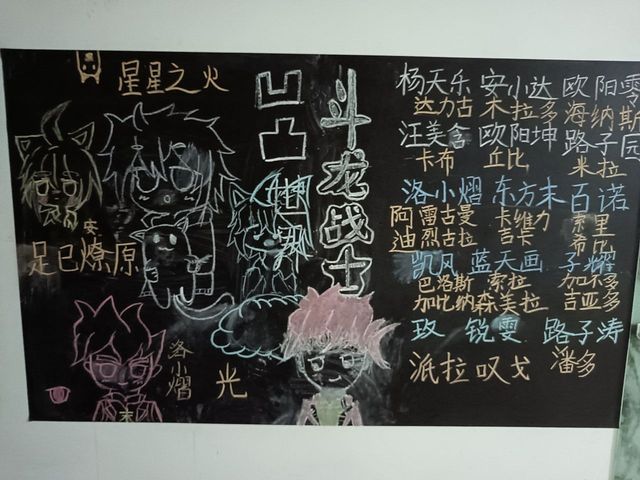 星星之火
安
足已燎原
凹凸世界
斗龙战士
洛小熠
光
末
杨天乐 安小达 欧阳零
达力古 木拉多 海纳斯
汪美含 欧阳坤 路子园
卡布 丘比 米拉
洛小熠 东方末 百诺
阿雷古曼 卡维力 索里
迪烈古拉 吉卡 希比
凯风 蓝天画 子耀
巴洛斯 索拉 加不多
加比纳 森美拉 吉亚多
玫 锐雯 路子涛
派拉 叹戈 潘多